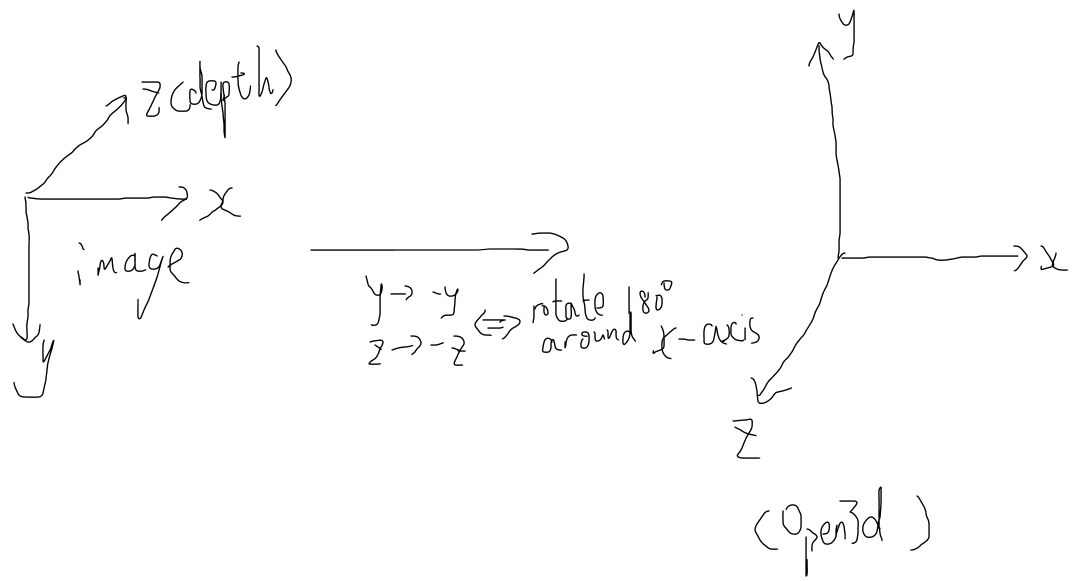 z(depth)
x
image
y
y → -y
z → -z
⇔
rotate 180°
around x-axis
y
x
z
(Open3d)